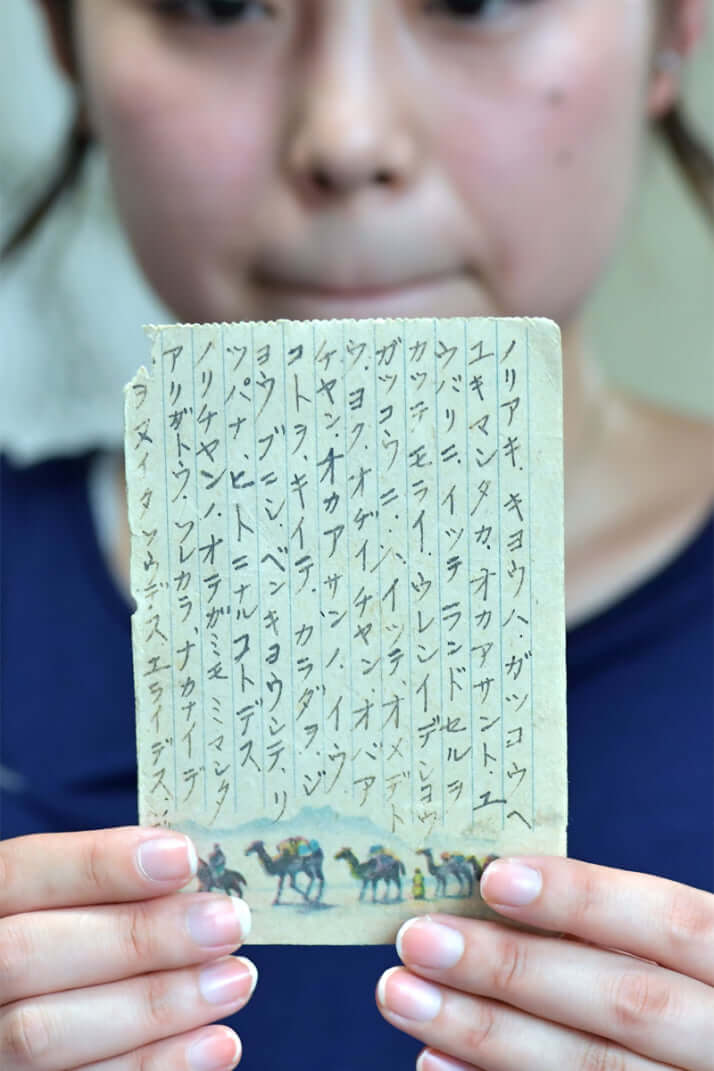 ノリアキ.キヨウハ.ガツコウヘ
ユキマシタカ.オカアサント.エ
ウバリニ.イツテランドセルヲ
カツテモライ.ウレシイデシヨウ
ガツコウニ.ハイツテ.オメデト
ウ.ヨク.オヂイチヤン.オバア
チヤン.オカアサンノ.イウ
コトヲ.キイテ.カラダヲ.ジ
ヨウブニシ.ベンキヨウシテ.リ
ツパナ.ヒトニナルコトデス.
ノリチヤンノ.オテガミモミマシタ
アリガトウ.ソレカラ、ナカナイデ
ヲヌイタソウデス.エライデス.